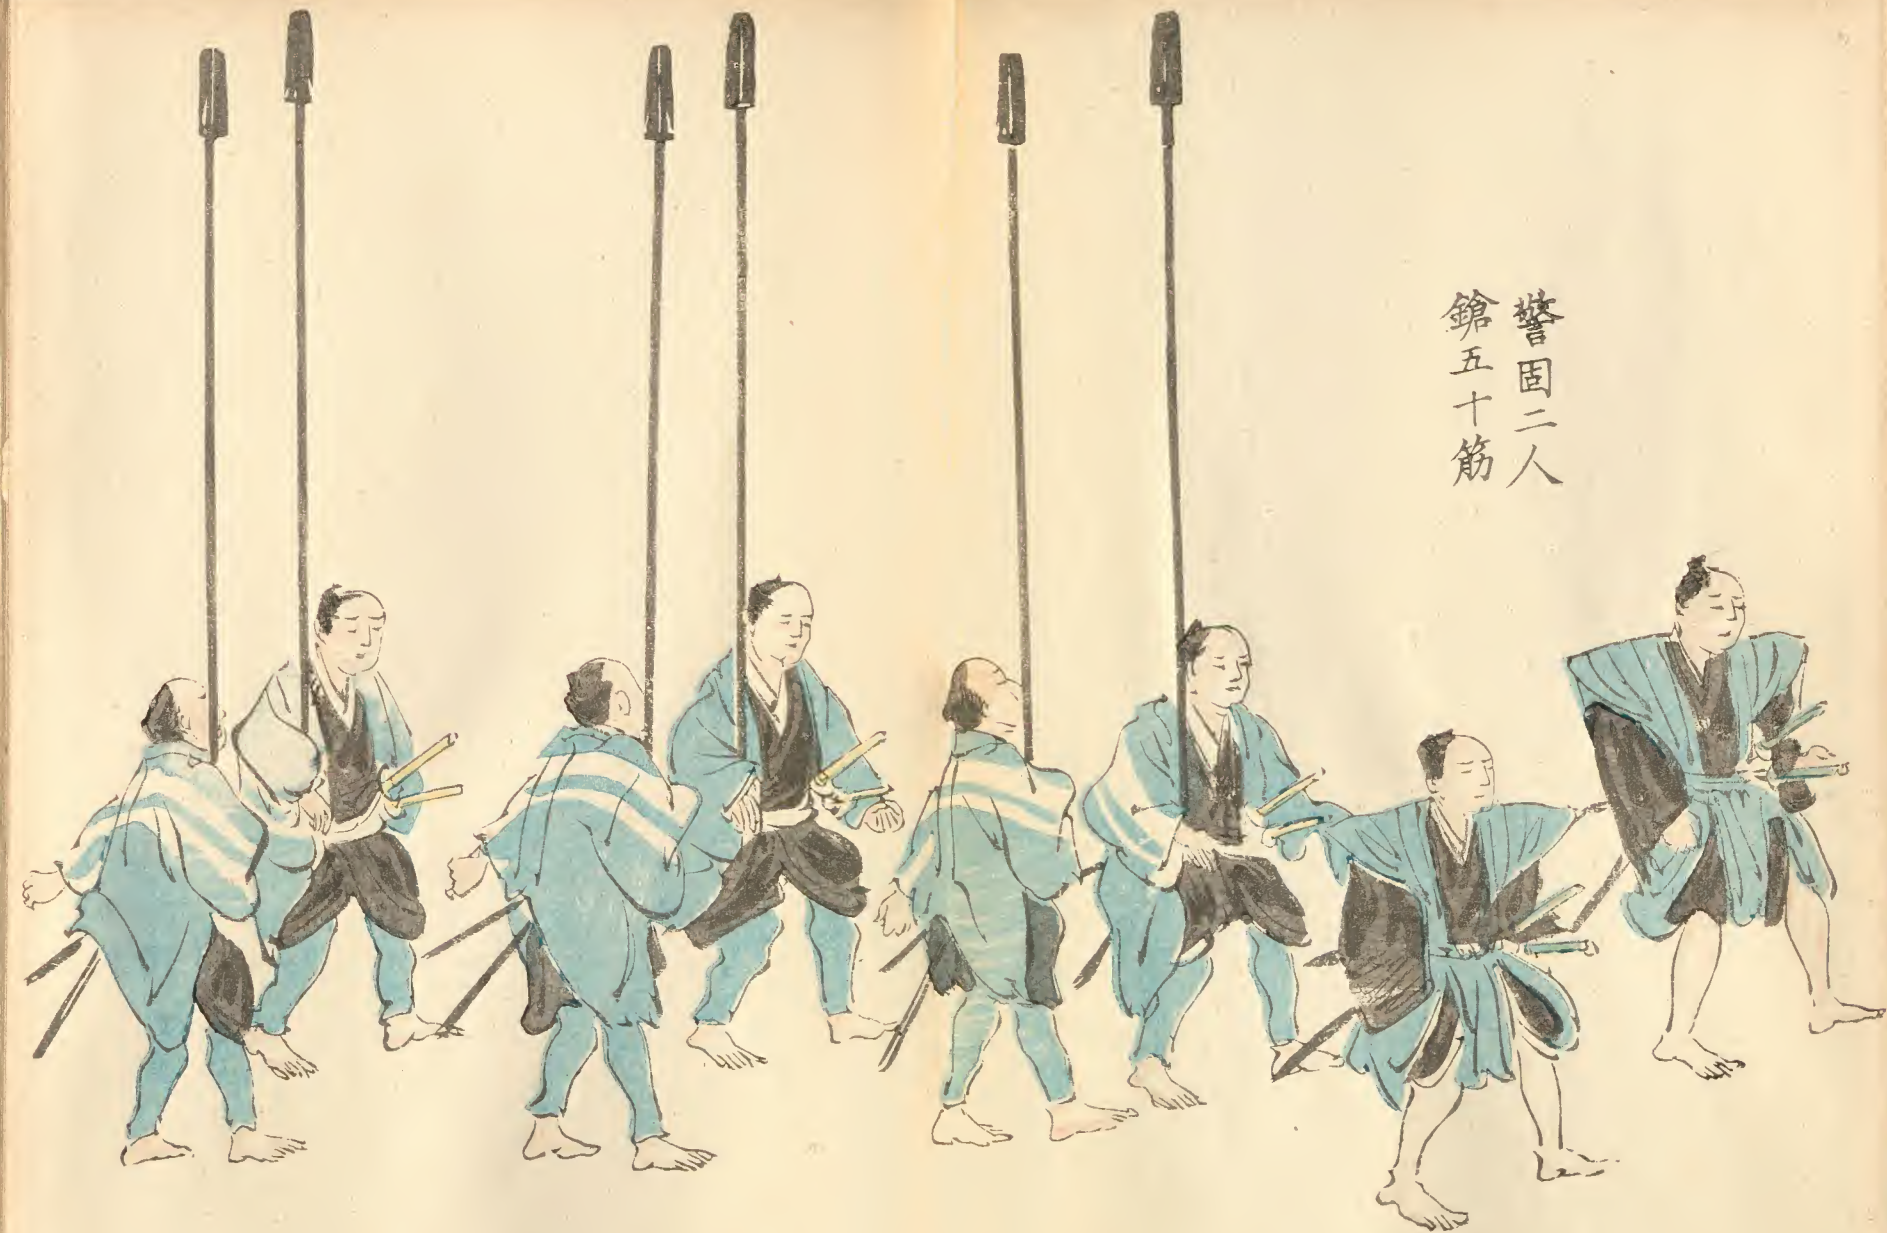 警固二人
鎗五十筋